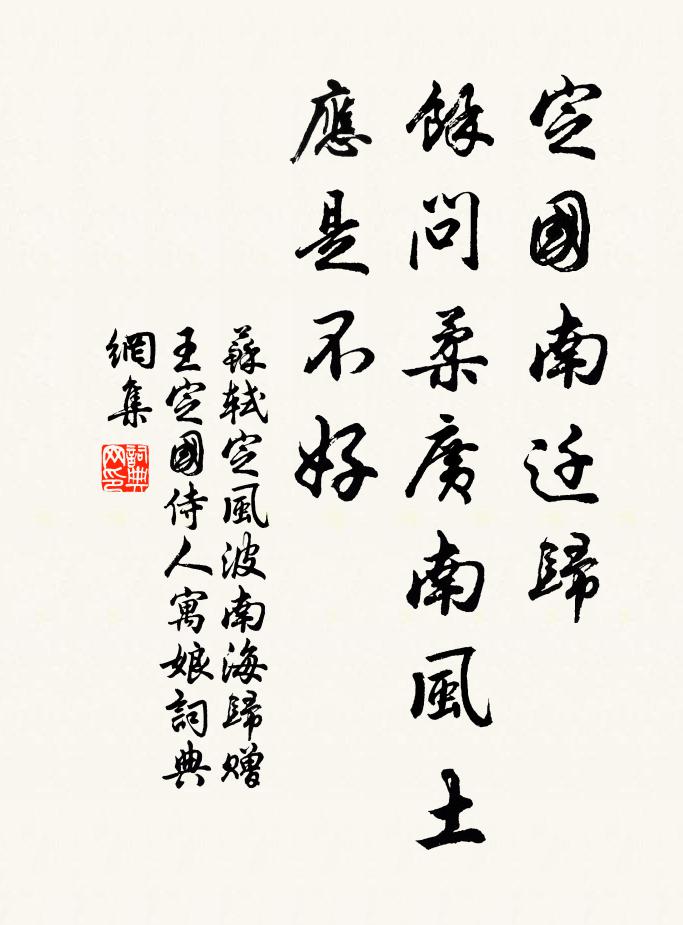 定國南迁歸
餘問柔廣南風土
應是不好
蘇軾定風波南海歸贈
王定國侍人寓娘詞典
網集
詞典网印